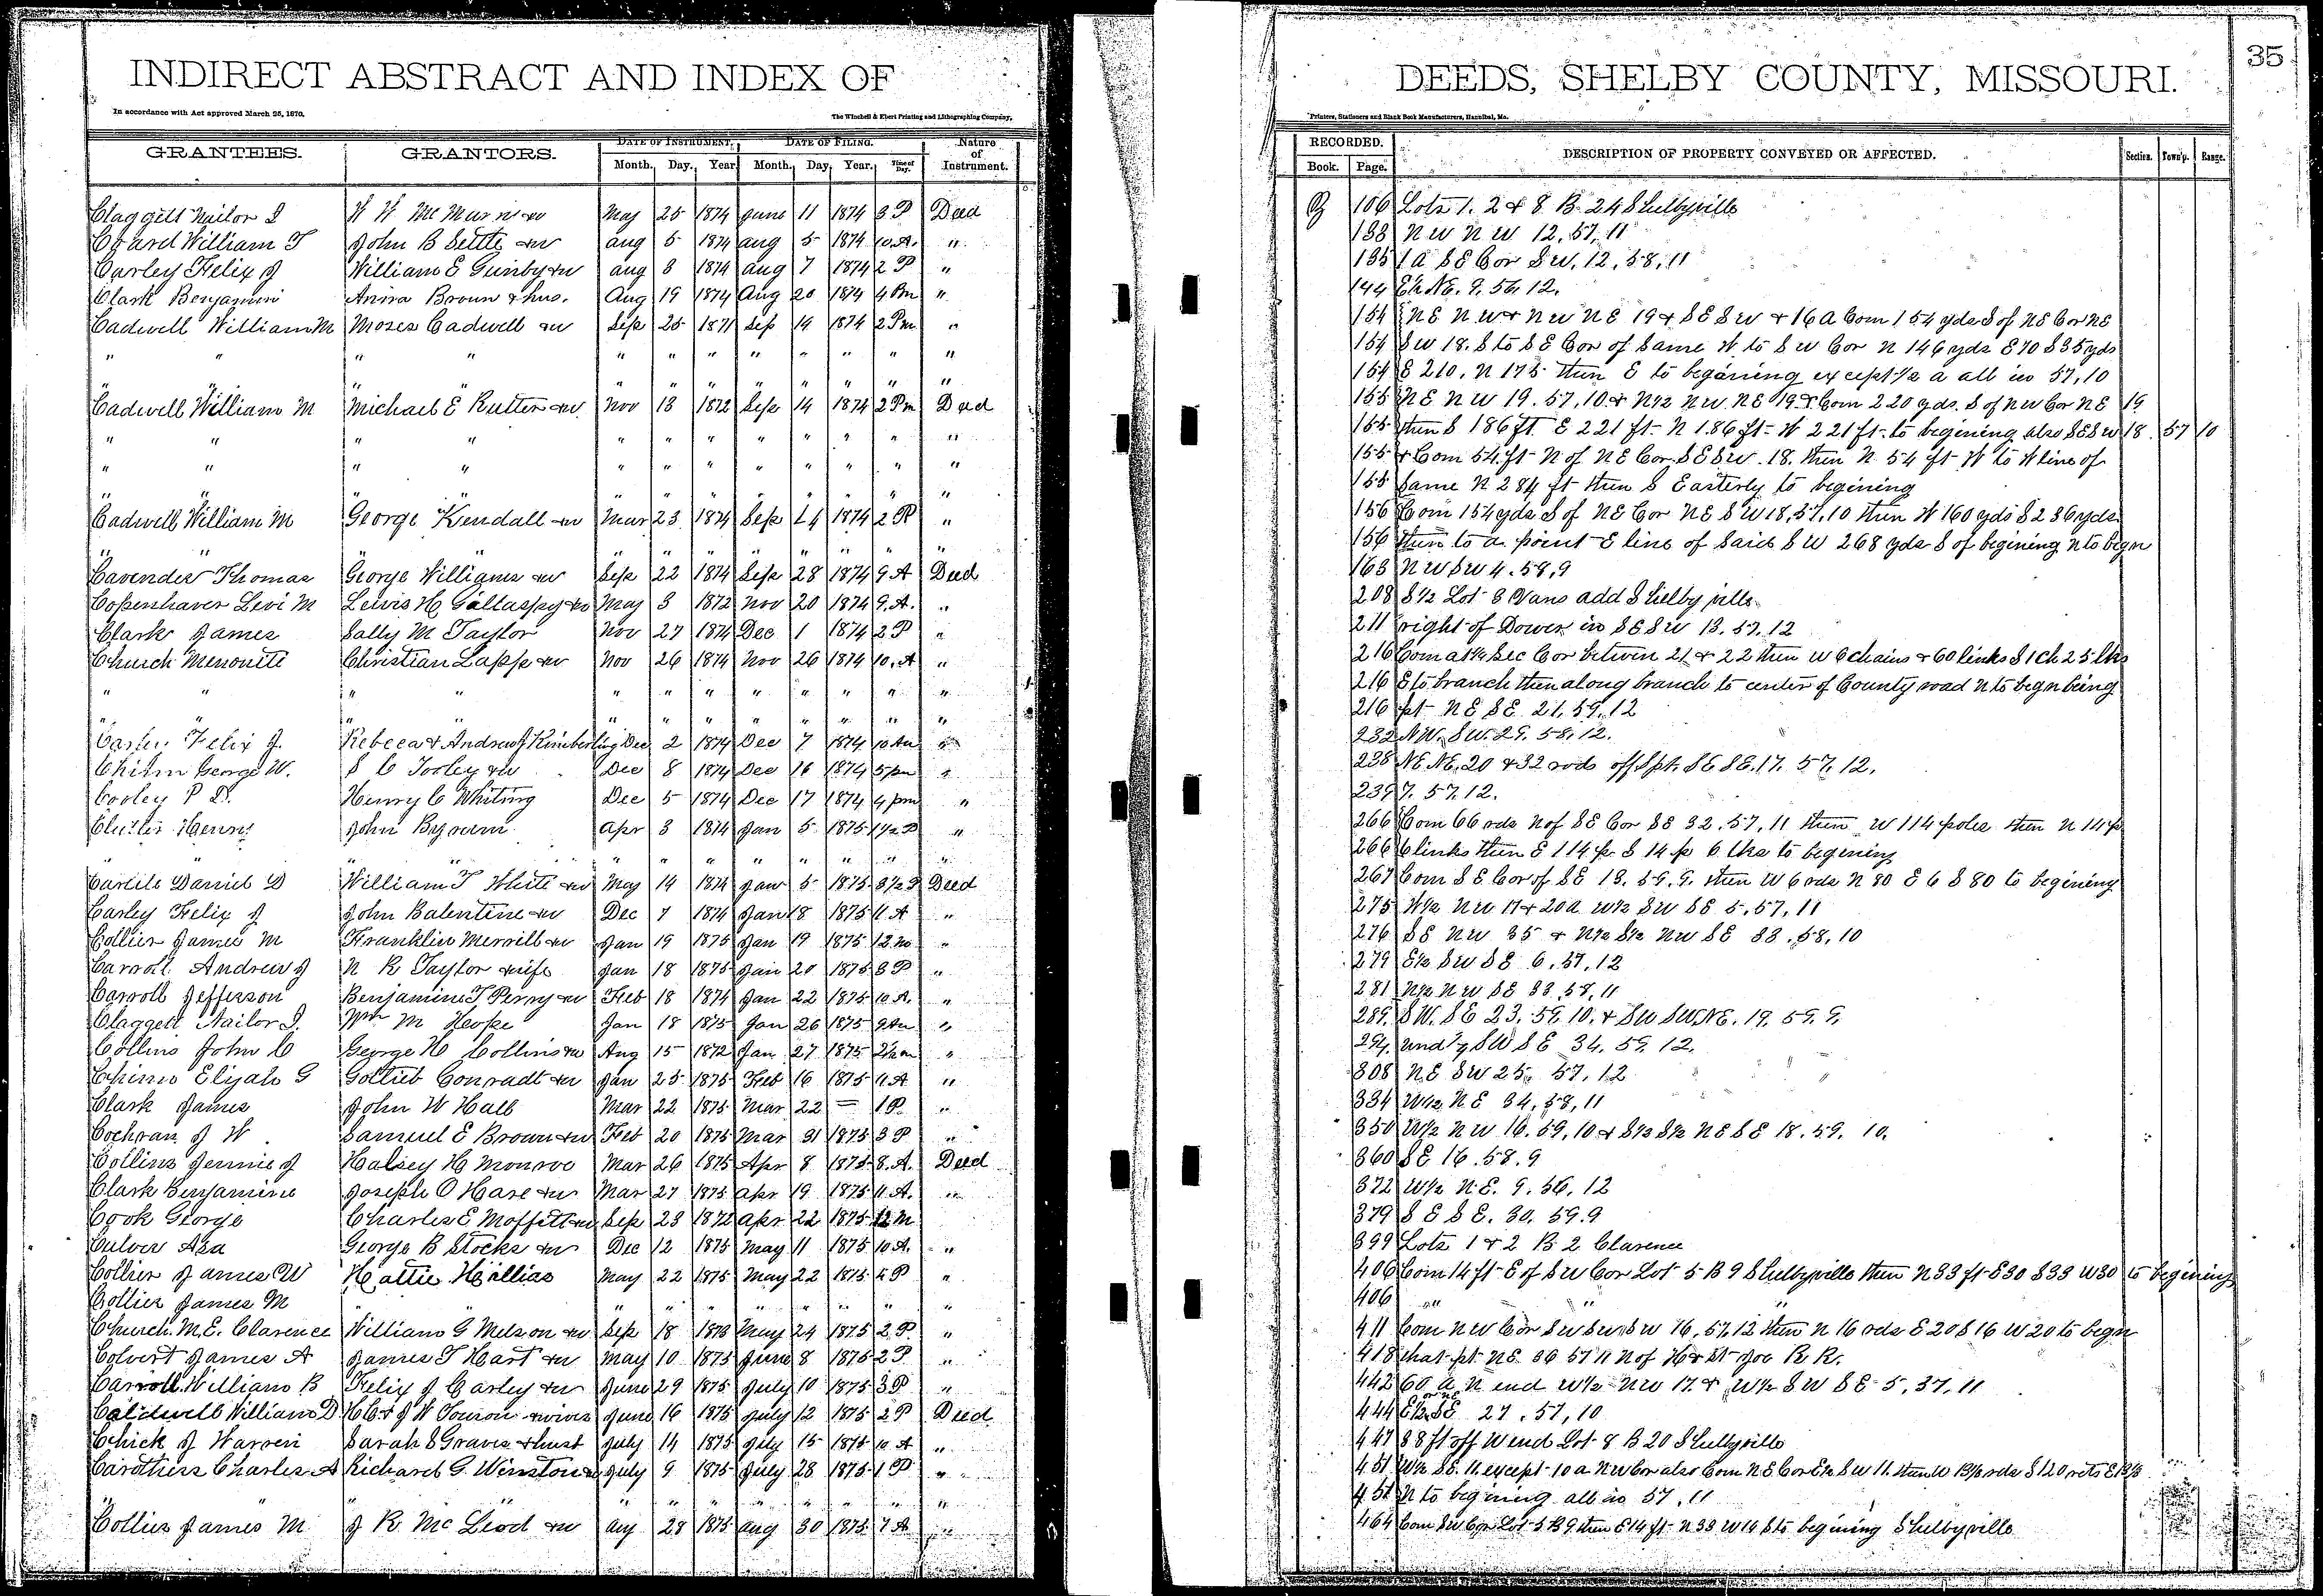 INDIRECT ABSTRACT AND INDEX OF
In accordance with Act approved March 25, 1870.
The Winchell & Ebert Printing and Lithographing Company,
GRANTEES. GRANTORS. DATE OF INSTRUMENT. DATE OF FILING. Nature of Instrument.
Month. Day. Year. Month. Day. Year. Time of Day.
Claggett Nailor I W W McMurn &w May 25 1874 June 11 1874 3 P Deed
William T John B Settle &w Aug 5 1874 Aug 5 1874 10 A. "
Carley Felix J William E Quinby &w Aug 3 1874 Aug 7 1874 2 P "
Clark Benjamin Anna Broun & hus. Aug 19 1874 Aug 20 1874 4 Pm "
Cadwell William M Moses Cadwell &w Sep 25 1871 Sep 14 1874 2 Pm "
" " " " " " " " " " " "
" " " " " " " " " "
Cadwell William M Michael E Rutter &w Nov 13 1872 Sep 14 1874 2 Pm Deed
" " " " " " " " " " " "
" " " " " " " " " " " "
" " " " " " " " " "
Cadwell William M George Kendall &w Mar 23 1874 Sep 14 1874 2 P "
" " " " " " " " " " "
Cavender Thomas George Williams &w Sep 22 1874 Sep 28 1874 9 A Deed
Copenhaver Levi M Lewis H Gallaspy &w May 3 1872 Nov 20 1874 9 A. "
Clark James Sally M Taylor Nov 27 1874 Dec 1 1874 2 P "
Church Menonite Christian Lapp &w Nov 26 1874 Nov 26 1874 10 A "
" " " " " " " " " " " "
" " " " " " " " " "
Felix J. Rebecca & Andrew J Kimberling Dec 2 1874 Dec 7 1874 10 Am "
Chism George W. S C Tooley &w Dec 8 1874 Dec 16 1874 5 pm "
Cooley P D. Henry C Whiting Dec 5 1874 Dec 17 1874 4 pm "
Henry John Byrum Apr 3 1874 Jan 5 1875 1½ P "
" " " " " " " " " " "
Carlile Daniel D William T White &w May 14 1874 Jan 5 1875 3½ P Deed
Carley Felix J John Balentine &w Dec 7 1874 Jan 18 1875 11 A "
Collier James M Franklin Merrill &w Jan 19 1875 Jan 19 1875 12 m "
Carroll Andrew J N R Taylor &wife Jan 18 1875 Jan 20 1875 3 P "
Carroll Jefferson Benjamine T Perry &w Feb 18 1874 Jan 22 1875 10 A. "
Claggett Nailor I. Wm M Hope Jan 18 1875 Jan 26 1875 9 Am "
Collins John C George H Collins &w Aug 15 1872 Jan 27 1875 "
Chinn Elijah G Gotlieb Conradt &w Jan 25 1875 Feb 16 1875 11 A "
Clark James John W Hall Mar 22 1875 Mar 22 = 1 P. "
Cochran J W Samuel E Brown &w Feb 20 1875 Mar 31 1875 3 P "
Collins Jennie J Halsey H Monroe Mar 26 1875 Apr 8 1875 8. A. Deed
Clark Benjamine Joseph O Hare &w Mar 27 1875 Apr 19 1875 11 A. "
Cook George Charles E Moffett &w Sep 23 1872 Apr 22 1875 12 M
Culver Asa George B Stocks &w Dec 12 1875 May 11 1875 10 A. "
Collier James W Hattie Hallias May 22 1875 May 22 1875 2 P "
Collier James M " " " " " " " "
Church. M.E. Clarence William G Melson &w Sep 18 1873 May 24 1875 2 P. "
Colvert James A James T Hart &w May 10 1875 June 8 1875 2 P "
Carroll William B Felix J Carley &w June 29 1875 July 10 1875 3 P "
Caldwell William D H C & J W &wives June 16 1875 July 12 1875 2 P Deed
Chick J Warren Sarah S Graves & hust July 14 1875 July 15 1875 10 A "
Carothers Charles A Richard G. Winston &w July 9 1875 July 28 1875 1 P "
" " " " " " " " " "
Collier James M J R McLeod &w Aug 28 1875 Aug 30 1875 7 A "
DEEDS, SHELBY COUNTY, MISSOURI.
35
Printers, Stationers and Blank Book Manufacturers, Hannibal, Mo.
RECORDED. DESCRIPTION OF PROPERTY CONVEYED OR AFFECTED. Section. Town'p. Range.
Book. Page.
106 Lots 1. 2 & 8 B. 24 Shelbyville
133 N W N W 12, 57, 11
135 1 A SE Cor S W, 12, 58, 11
144 E½ NE. 9. 56, 12.
154 NE N W & N W N E 19 & S E S W & 16 A Com 154 yds S of NE Cor NE
154 S W 18. S to S E Cor of same W to S W Cor N 146 yds E 70 S 35 yds
154 E 210, N 175 then E to begining except ½ a all in 57, 10
155 NE N W 19. 57, 10 & N½ N W. N E 19 & Com 220 yds. S of N W Cor N E 19
155 then S 186 ft E 221 ft N 186 ft W 221 ft to begining also S E S W 18. 57 10
155 & Com 54 ft N of NE Cor S E S W. 18. then N 54 ft W to W line of
155 same N 284 ft then S Easterly to begining
156 Com 154 yds S of NE Cor NE S W 18, 57, 10 then W 160 yds S 236 yds
156 then to a point E line of said S W 268 yds S of begining N to begn
163 N W S W 4. 58, 9
208 S½ Lot 3 Vans add Shelbyville
211 right of Dower in S E S W 13. 57. 12
216 Com at ¼ Sec Cor between 21 & 22 then W 6 chains & 60 links S 1 ch 25 lks
216 E to branch then along branch to center of County road N to begn being
216 pt N E S E 21, 59, 12
232 N W. S W. 29. 58, 12.
238 NE. NE. 20 & 32 rods off S pt. SE SE. 17. 57. 12.
239 7. 57. 12.
266 Com 66 rds N of S E Cor S E 32. 57, 11 then W 114 poles then N 14 p
266 6 links then E 114 p. S 14 p 6 lks to begining
267 Com S E Cor of S E 13. 59. 9. then W 6 rds N 80 E 6 S 80 to begining
275 W½ N W 17 & 20 a W½ S W S E 5. 57, 11
276 S E N W 35 & N½ S½ N W S E 33. 58, 10
279 E½ S W S E 6. 57, 12
281 N½ N W S E 33. 58, 11
289. S W. S E 23. 59. 10. & S W S W. N E. 19. 59. 9.
294. S W S E 34. 59. 12.
308 N.E S W 25. 57, 12
334 W½ N.E 34, 58, 11
350 W½ N W 16. 59, 10 & S½ S½ N E S E 18. 59. 10.
360 S E 16. 58. 9
372 W½ N.E. 9. 56, 12
379 S E S E. 30. 59. 9
399 Lots 1 & 2 B 2 Clarence
406 Com 14 ft E of S W Cor Lot 5 B 9 Shelbyville then N 33 ft E 30 S 33 W 30 to begining
406 " " "
411 Com N W Cor S W S W S W 16, 57, 12 then N 16 rds E 20 S 16 W 20 to begn
418 that pt NE 36 57 11 N of H & St Joe R R.
442 60 a N end W½ NW 17. & W½ S W S E 5. 37. 11
444 E½ SE 27. 57, 10
447 88 ft off W end Lot 8 B 20 Shelbyville
451 W½ S E. 11. except 10 a N W Cor also Com N E Cor E½ S W 11. then W 13⅓ rds S 120 rds E 13⅓
451 N to begining all in 57, 11
464 Com S W Cor Lot 5 B 9 then E 14 ft N 33 W 14 S to begining Shelbyville